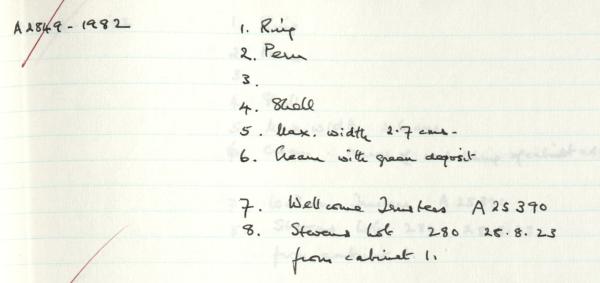 A2849-1982
1. Ring
2. Peru
3.
4. Shell
5. Max. width 2.7 cms-
6. Cream with green deposit
7. Wellcome Trustees A25390
8. Stevens Lot 280 28.8.23
from cabinet 1.